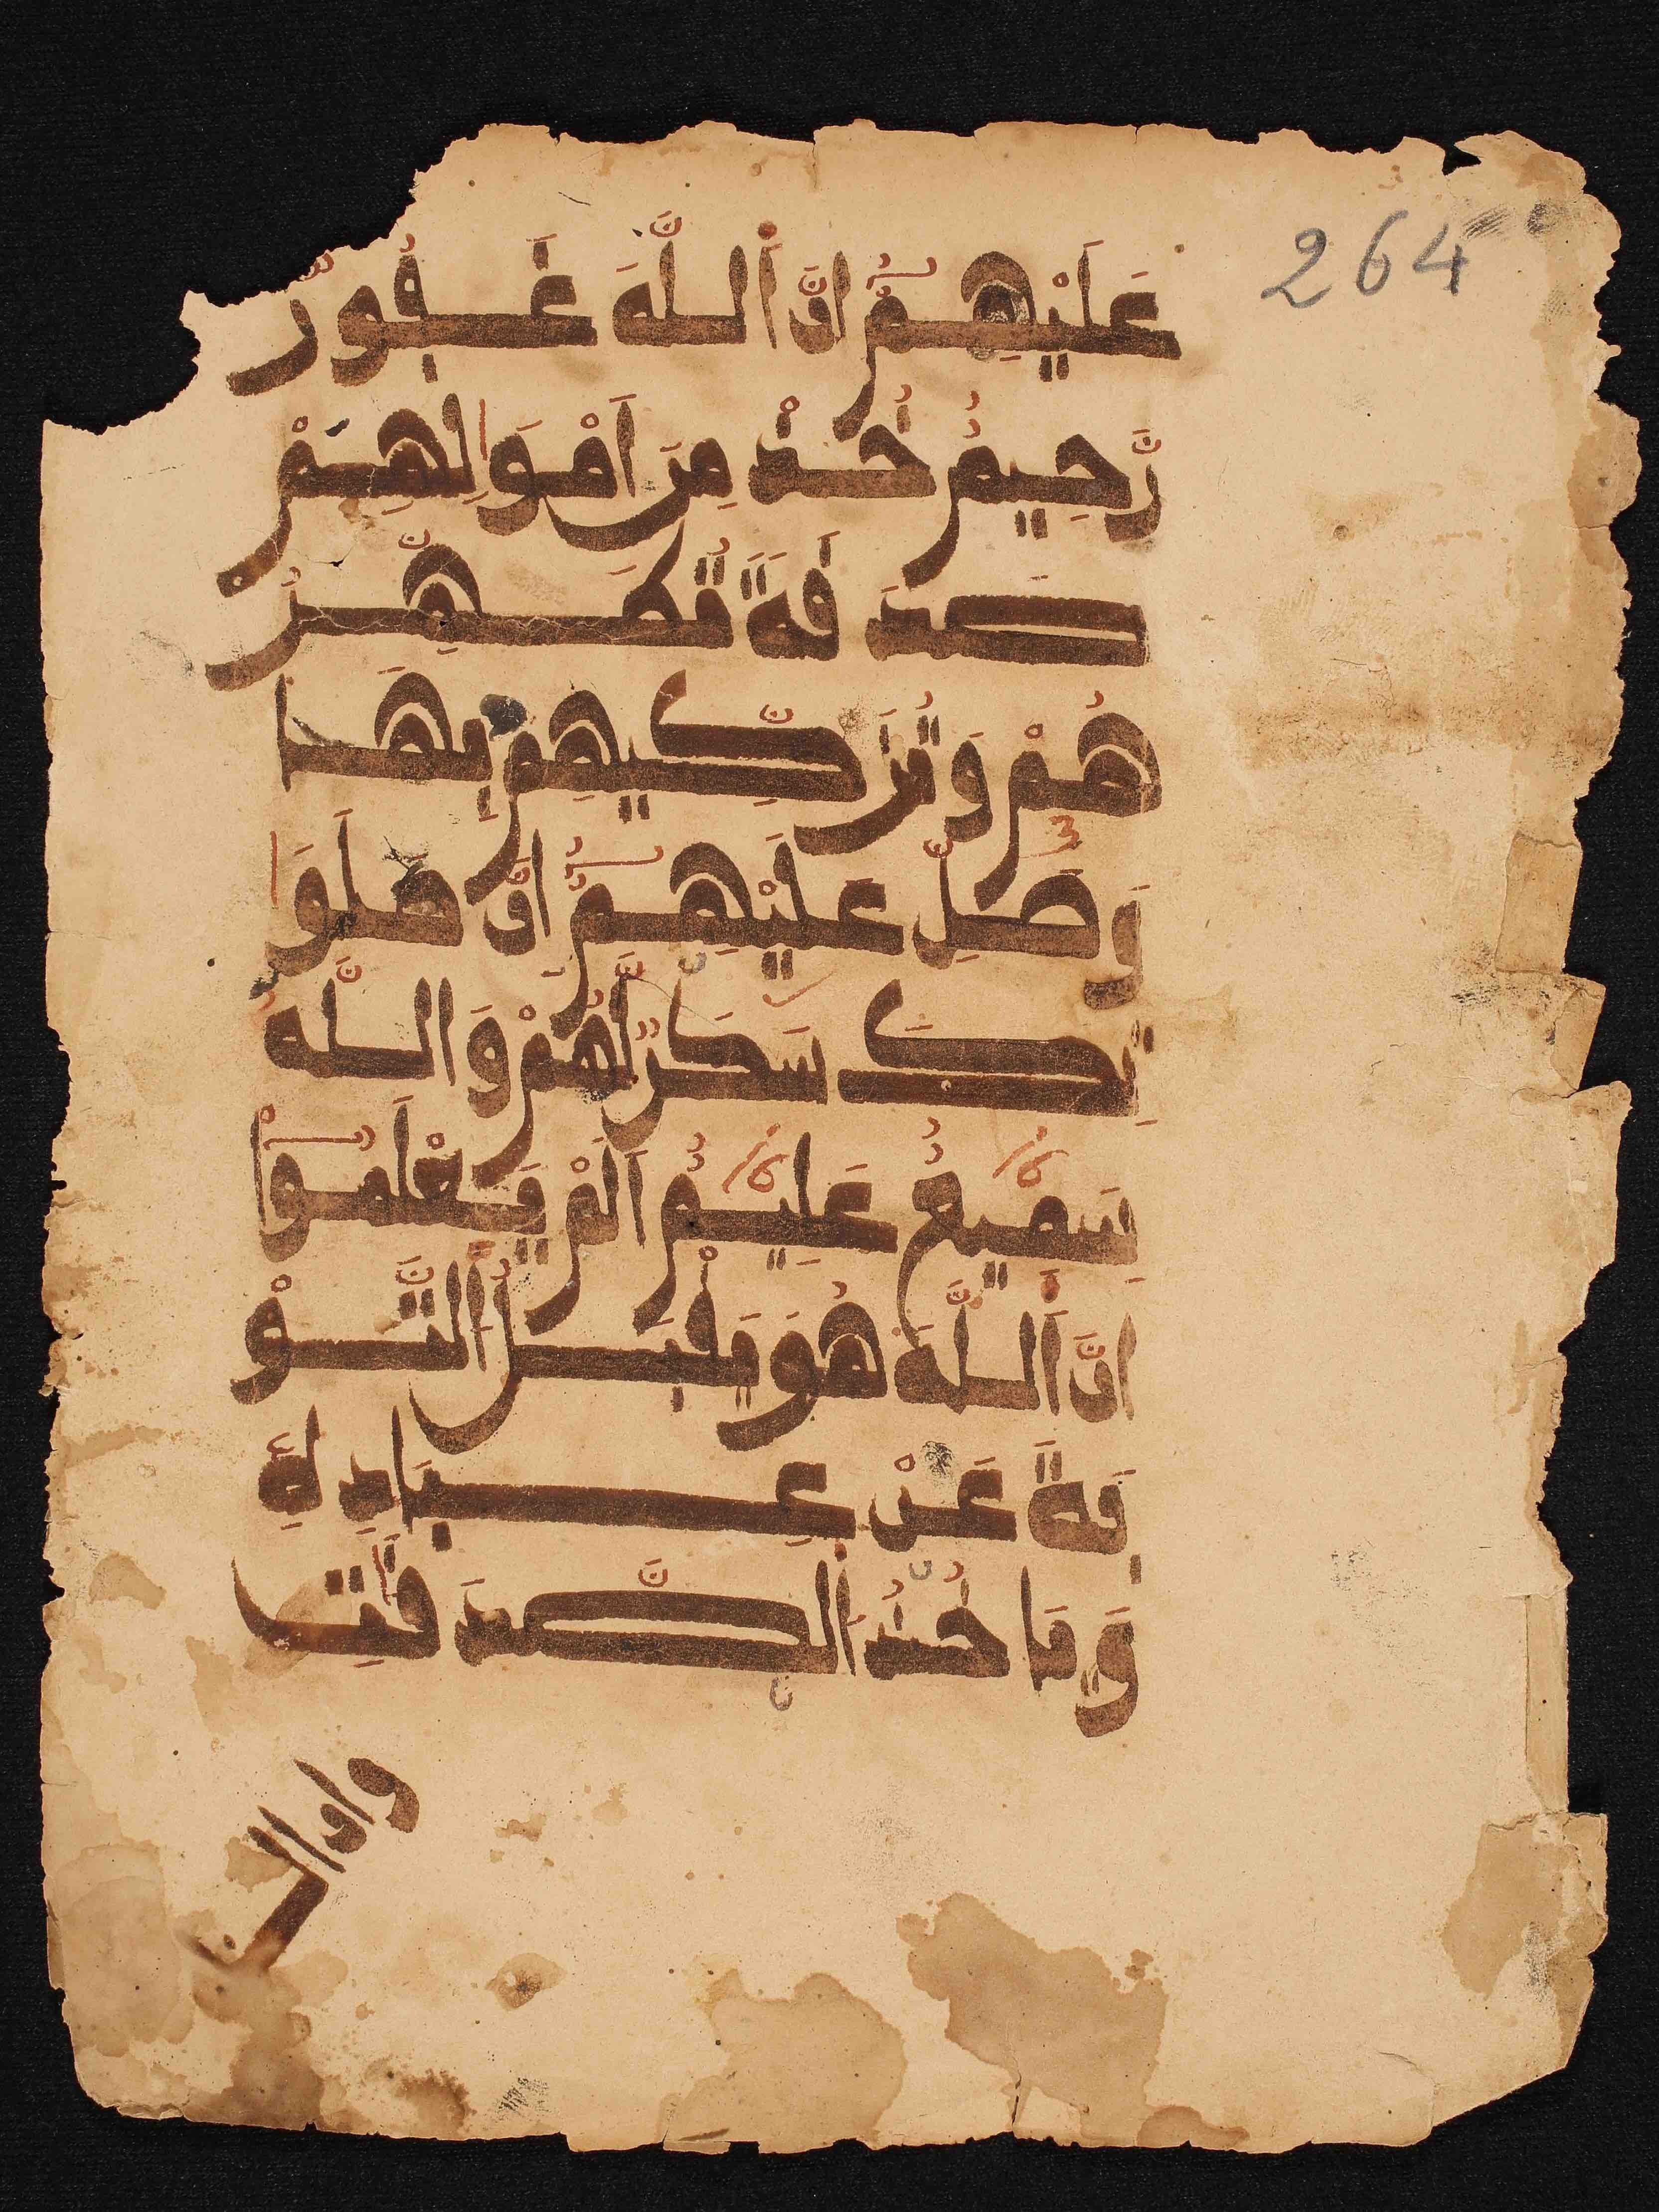 264
عَلَيْهِمُۥٓ إِنَّ اَ۬للَّهَ غَفُورٞ
رَّحِيمٌ خُذْ مِنَ اَمْوَٰلِهِمْ
صَدَقَةٗ تُطَهِّرُ
هُمْ وَتُزَكِّيهِم بِهَا
وَصَلِّ عَلَيْهِمُۥٓ إِنَّ صَلَوَٰ
تِكَ سَكَنٞ لَّهُمْ وَاللَّهُ
سَمِيعٌ عَلِيمٌ اَلَمْ يَعْلَمُوٓاْ
أَنَّ اَ۬للَّهَ هُوَ يَقْبَلُ اُ۬لتَّوْ
بَةَ عَنْ عِبَادِهِۦ
وَيَاخُذُ اُ۬لصَّدَقَٰتِ
وان ال